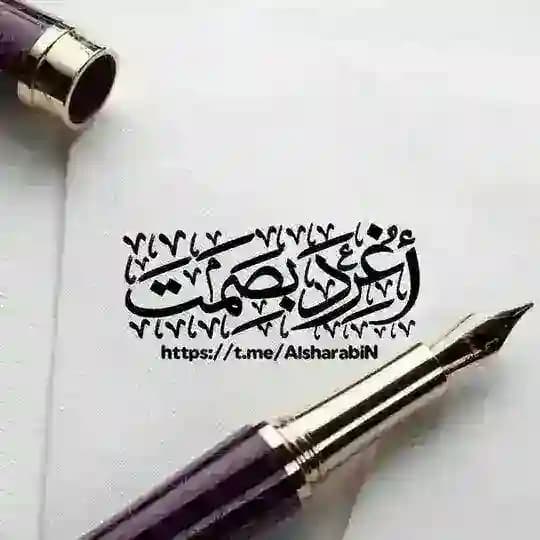 أُغرّد بصَمت
https://t.me/AlsharabiN